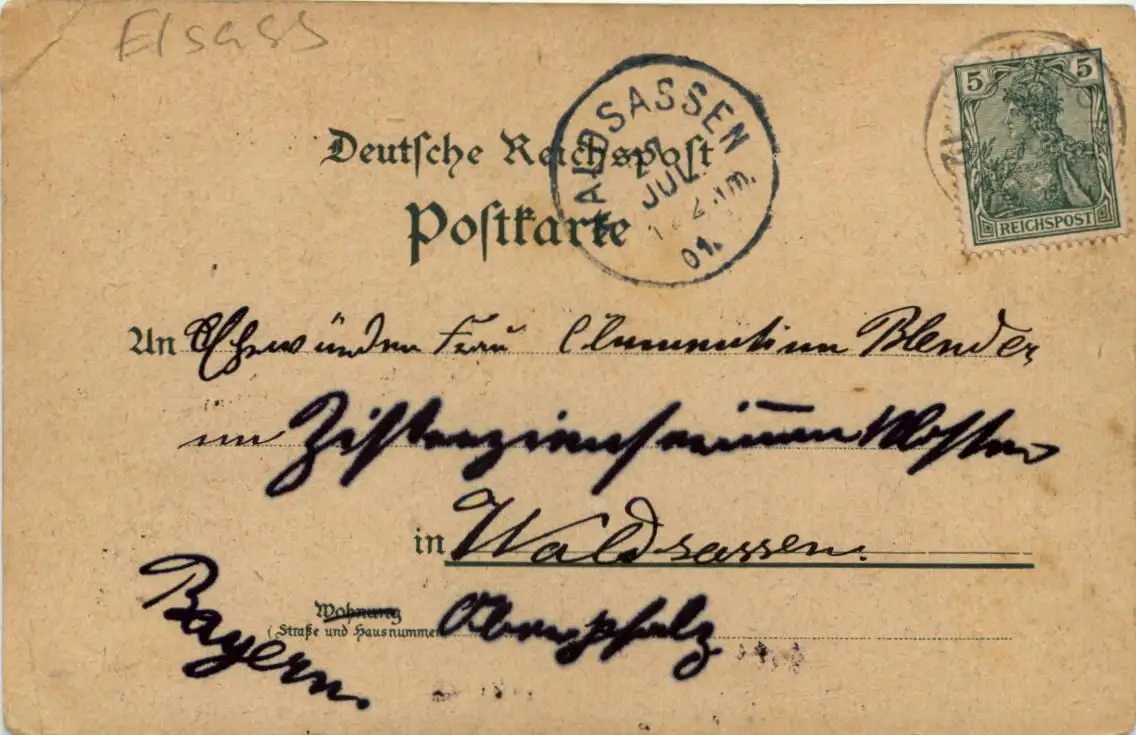 Elsass
5 5
REICHSPOST
WALDSASSEN
JUL.
01.
Deutsche Reichspost
Postkarte
An Ehrwürden Frau Clementina Blender
im Zisterzienserinnen Kloster
in Waldsassen.
Wohnung
(Straße und Hausnummer
Oberpfalz
Bayern.